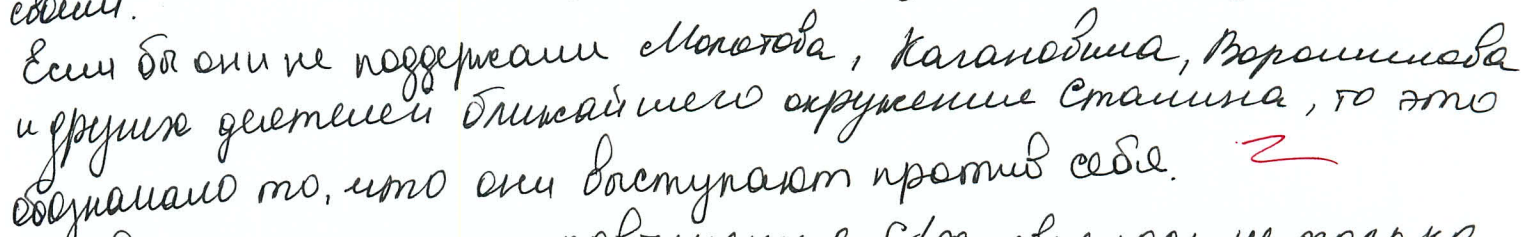 своим.
Если бы они не поддержали Молотова, Кагановича, Ворошилова
и других деятелей ближайшего окружения Сталина, то это
обозначало то, что они выступают против себя.